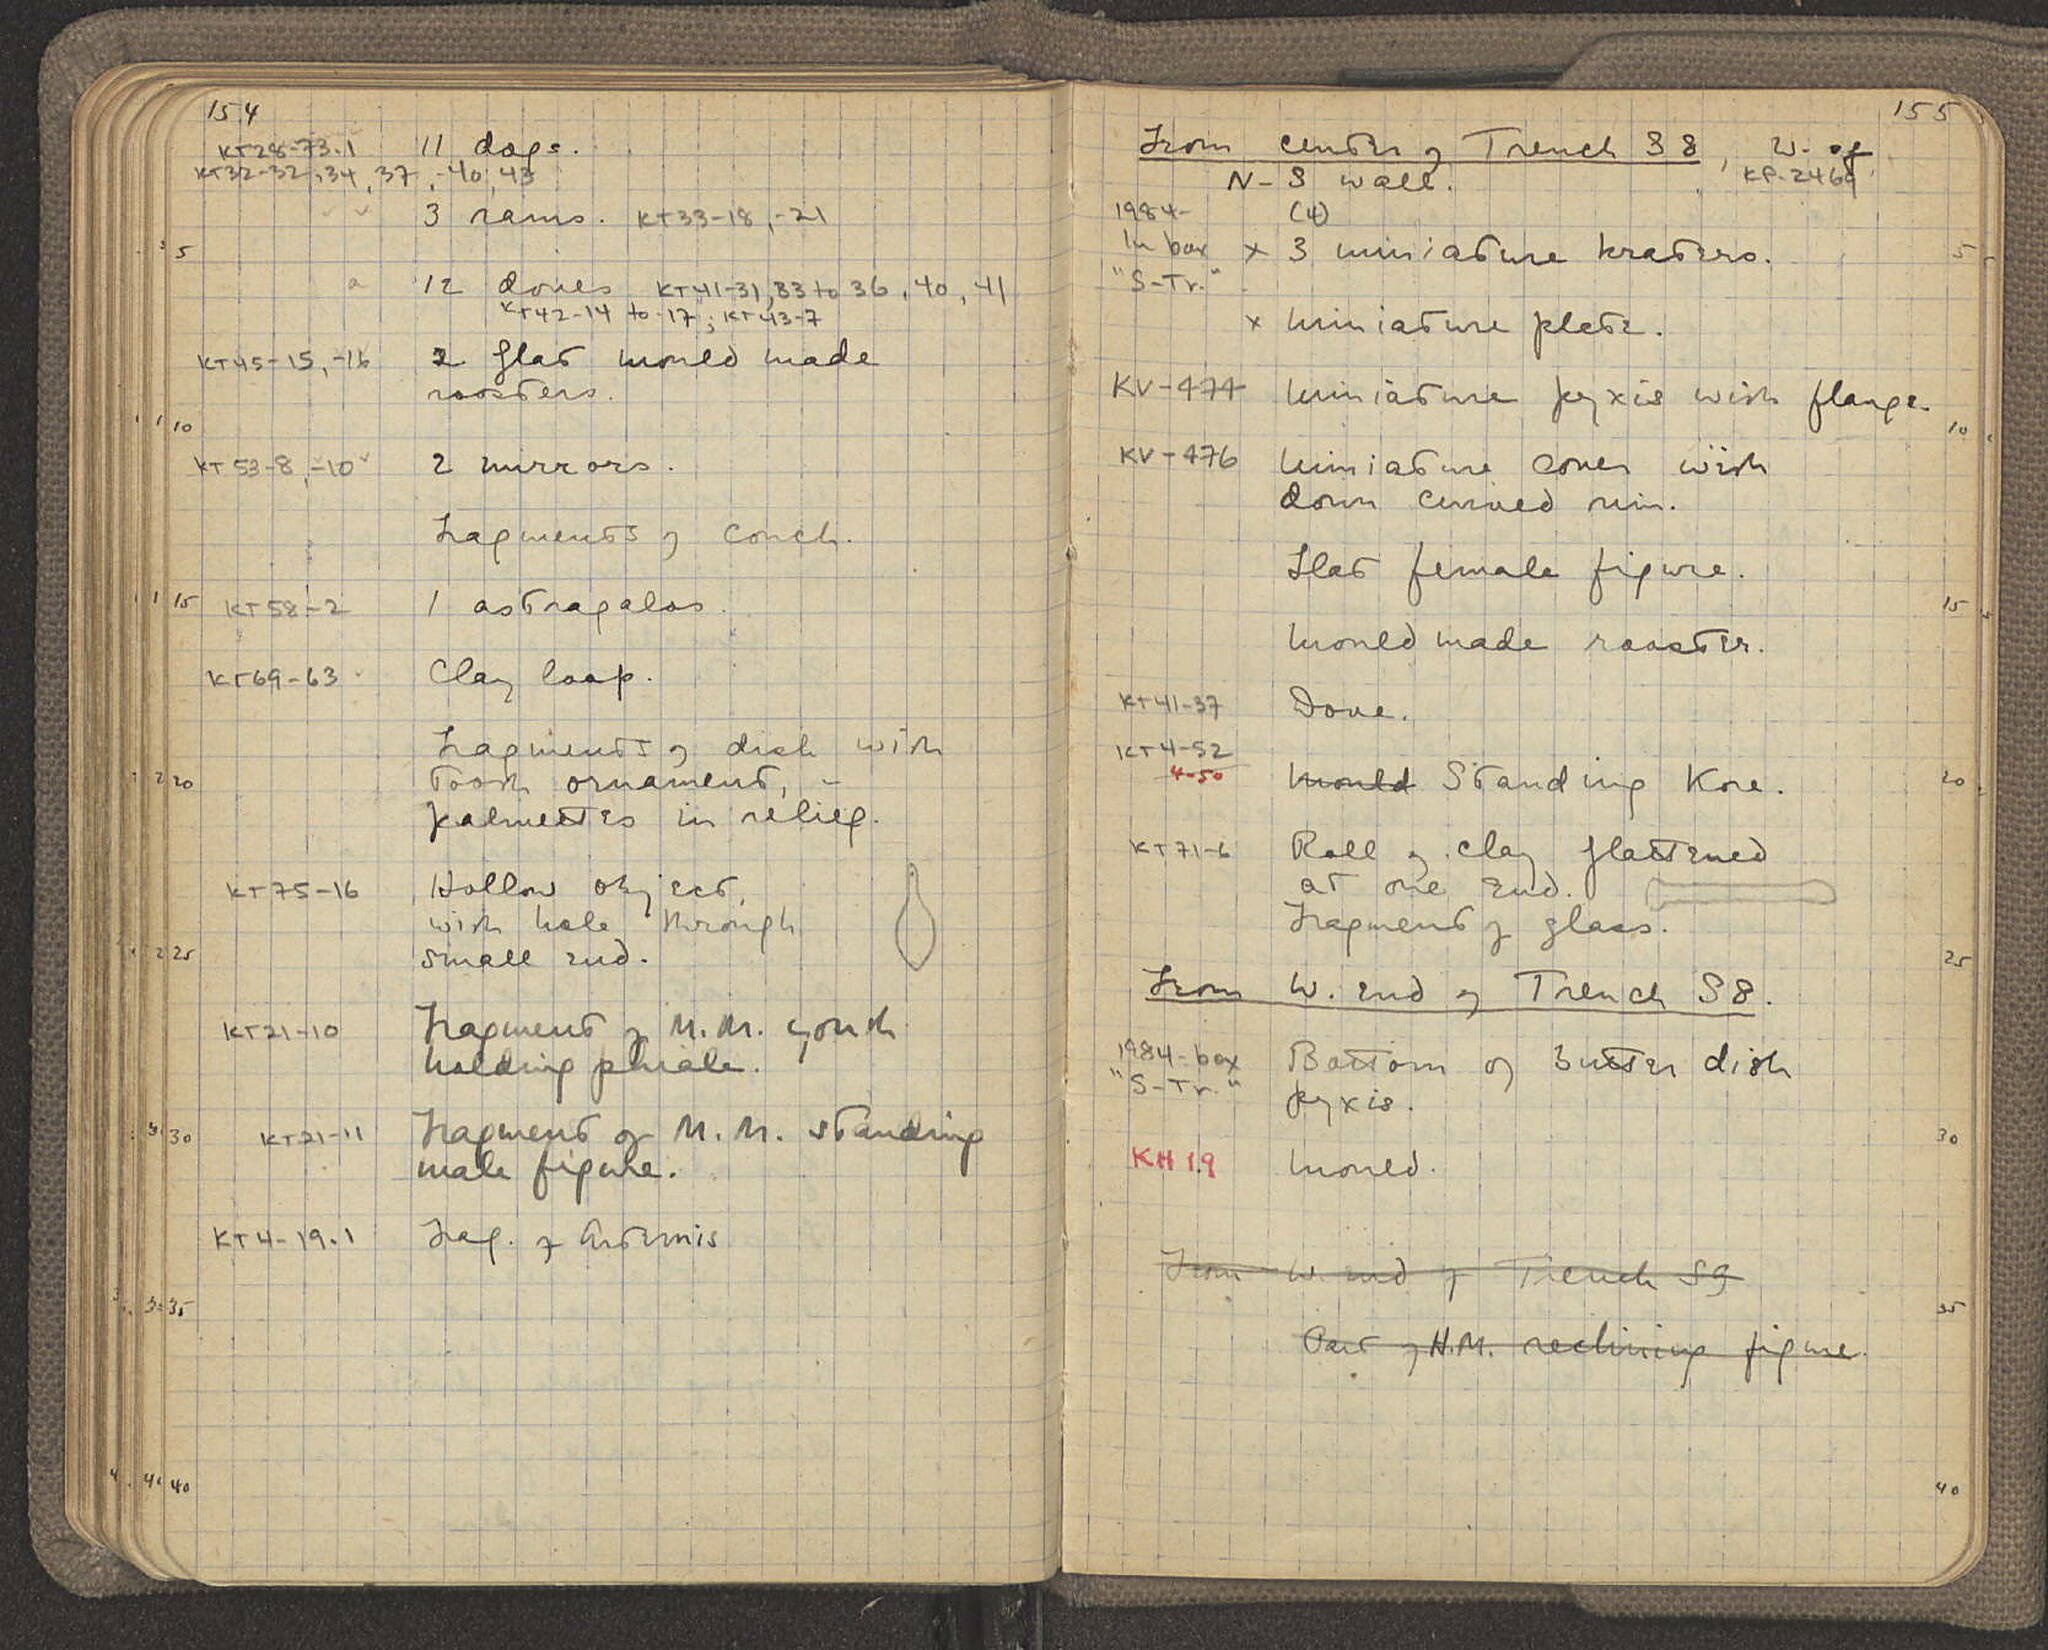 154
KT28-73.1 11 dogs.
KT32-32, 34, 37, -40, 43
3 rams. KT33-18, -21
5
12 doves KT41-31, 33 to 36, 40, 41
KT42-14 to -17; KT43-7
KT45-15, -16 2 flat mould made
roosters.
10
KT53-8, -10 2 mirrors.
Fragments of couch.
15 KT58-2 1 astragalos.
KT69-63 Clay loop.
Fragments of dish with
20 tooth ornament, -
palmettes in relief.
KT75-16 Hollow object,
with hole through
25 small end.
KT21-10 Fragment of M.M. youth
holding phiale.
30 KT21-11 Fragment of M.M. standing
male figure.
KT4-19.1 Frag. of Artemis
35
40
155
From center of Trench S8, W. of
N-S wall. KP-2469
1984- (4)
In box x 3 miniature kraters. 5
"S-Tr."
x Miniature plate.
KV-474 Miniature pyxis with flange.
10
KV-476 Miniature cover with
down curved rim.
Flat female figure.
15
Mould made rooster.
KT41-37 Dove.
KT4-52
4-50 Mould Standing Kore. 20
KT71-6 Roll of clay flattened
at one end.
Fragment of glass.
25
From W. end of Trench S8.
1984-box Bottom of butter dish
"S-Tr." pyxis.
30
KH 19 Mould.
From W. end of Trench S9
35
Part of H.M. reclining figure.
40